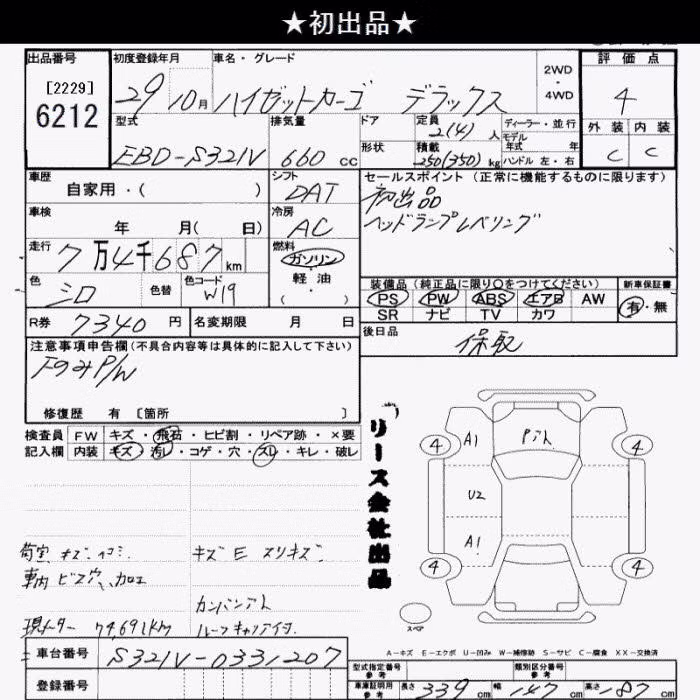 ★初出品★
出品番号
[2229]
6212
初度登録年月 車名・グレード
29 10月 ハイゼットカーゴ デラックス
2WD
・
4WD
評価点
4
外装 内装
C C
型式 排気量 ドア 定員 ディーラー・並行
EBD-S321V 660 cc 2(4) 人
モデル
年式 年
形状 積載 250(350) kg ハンドル 左・右
車歴 自家用・( )
シフト DAT
車検 年 月( 日)
冷房 AC
走行 7万4千687km
燃料 ガソリン・軽油・( )
色 シロ 色替 色コード W19
R券 7340円 名変期限 月 日
セールスポイント(正常に機能するものに限ります)
初出品
ヘッドランプレベリング
装備品(純正品に限り○をつけてください) 新車保証書
PS PW ABS エアB AW 有・無
SR ナビ TV カワ
後日品 保取
注意事項申告欄(不具合内容等は具体的に記入して下さい)
FのみP/W
修復歴 有 [箇所 ]
検査員 FW キズ・飛石・ヒビ割・リペア跡・×要
記入欄 内装 キズ・汚レ・コゲ・穴・スレ・キレ・破レ
荷室 キズ・ヘコミ、 キズ E スリキズ、
車内 ビス穴、加工
カンバンアト
現メーター 74,691KM ルーフキャリア付、
リース会社出品
4 A1 Pアト 4
U2
A1
4 4
スペア
A-キズ E-エクボ U-凹み W-補修跡 S-サビ C-腐食 XX-交換済
車台番号 S321V-0331207
登録番号
型式指定番号 参考 類別区分番号 参考
車庫証明用 参考 長さ 339 cm 幅 147 cm 高さ 187 cm